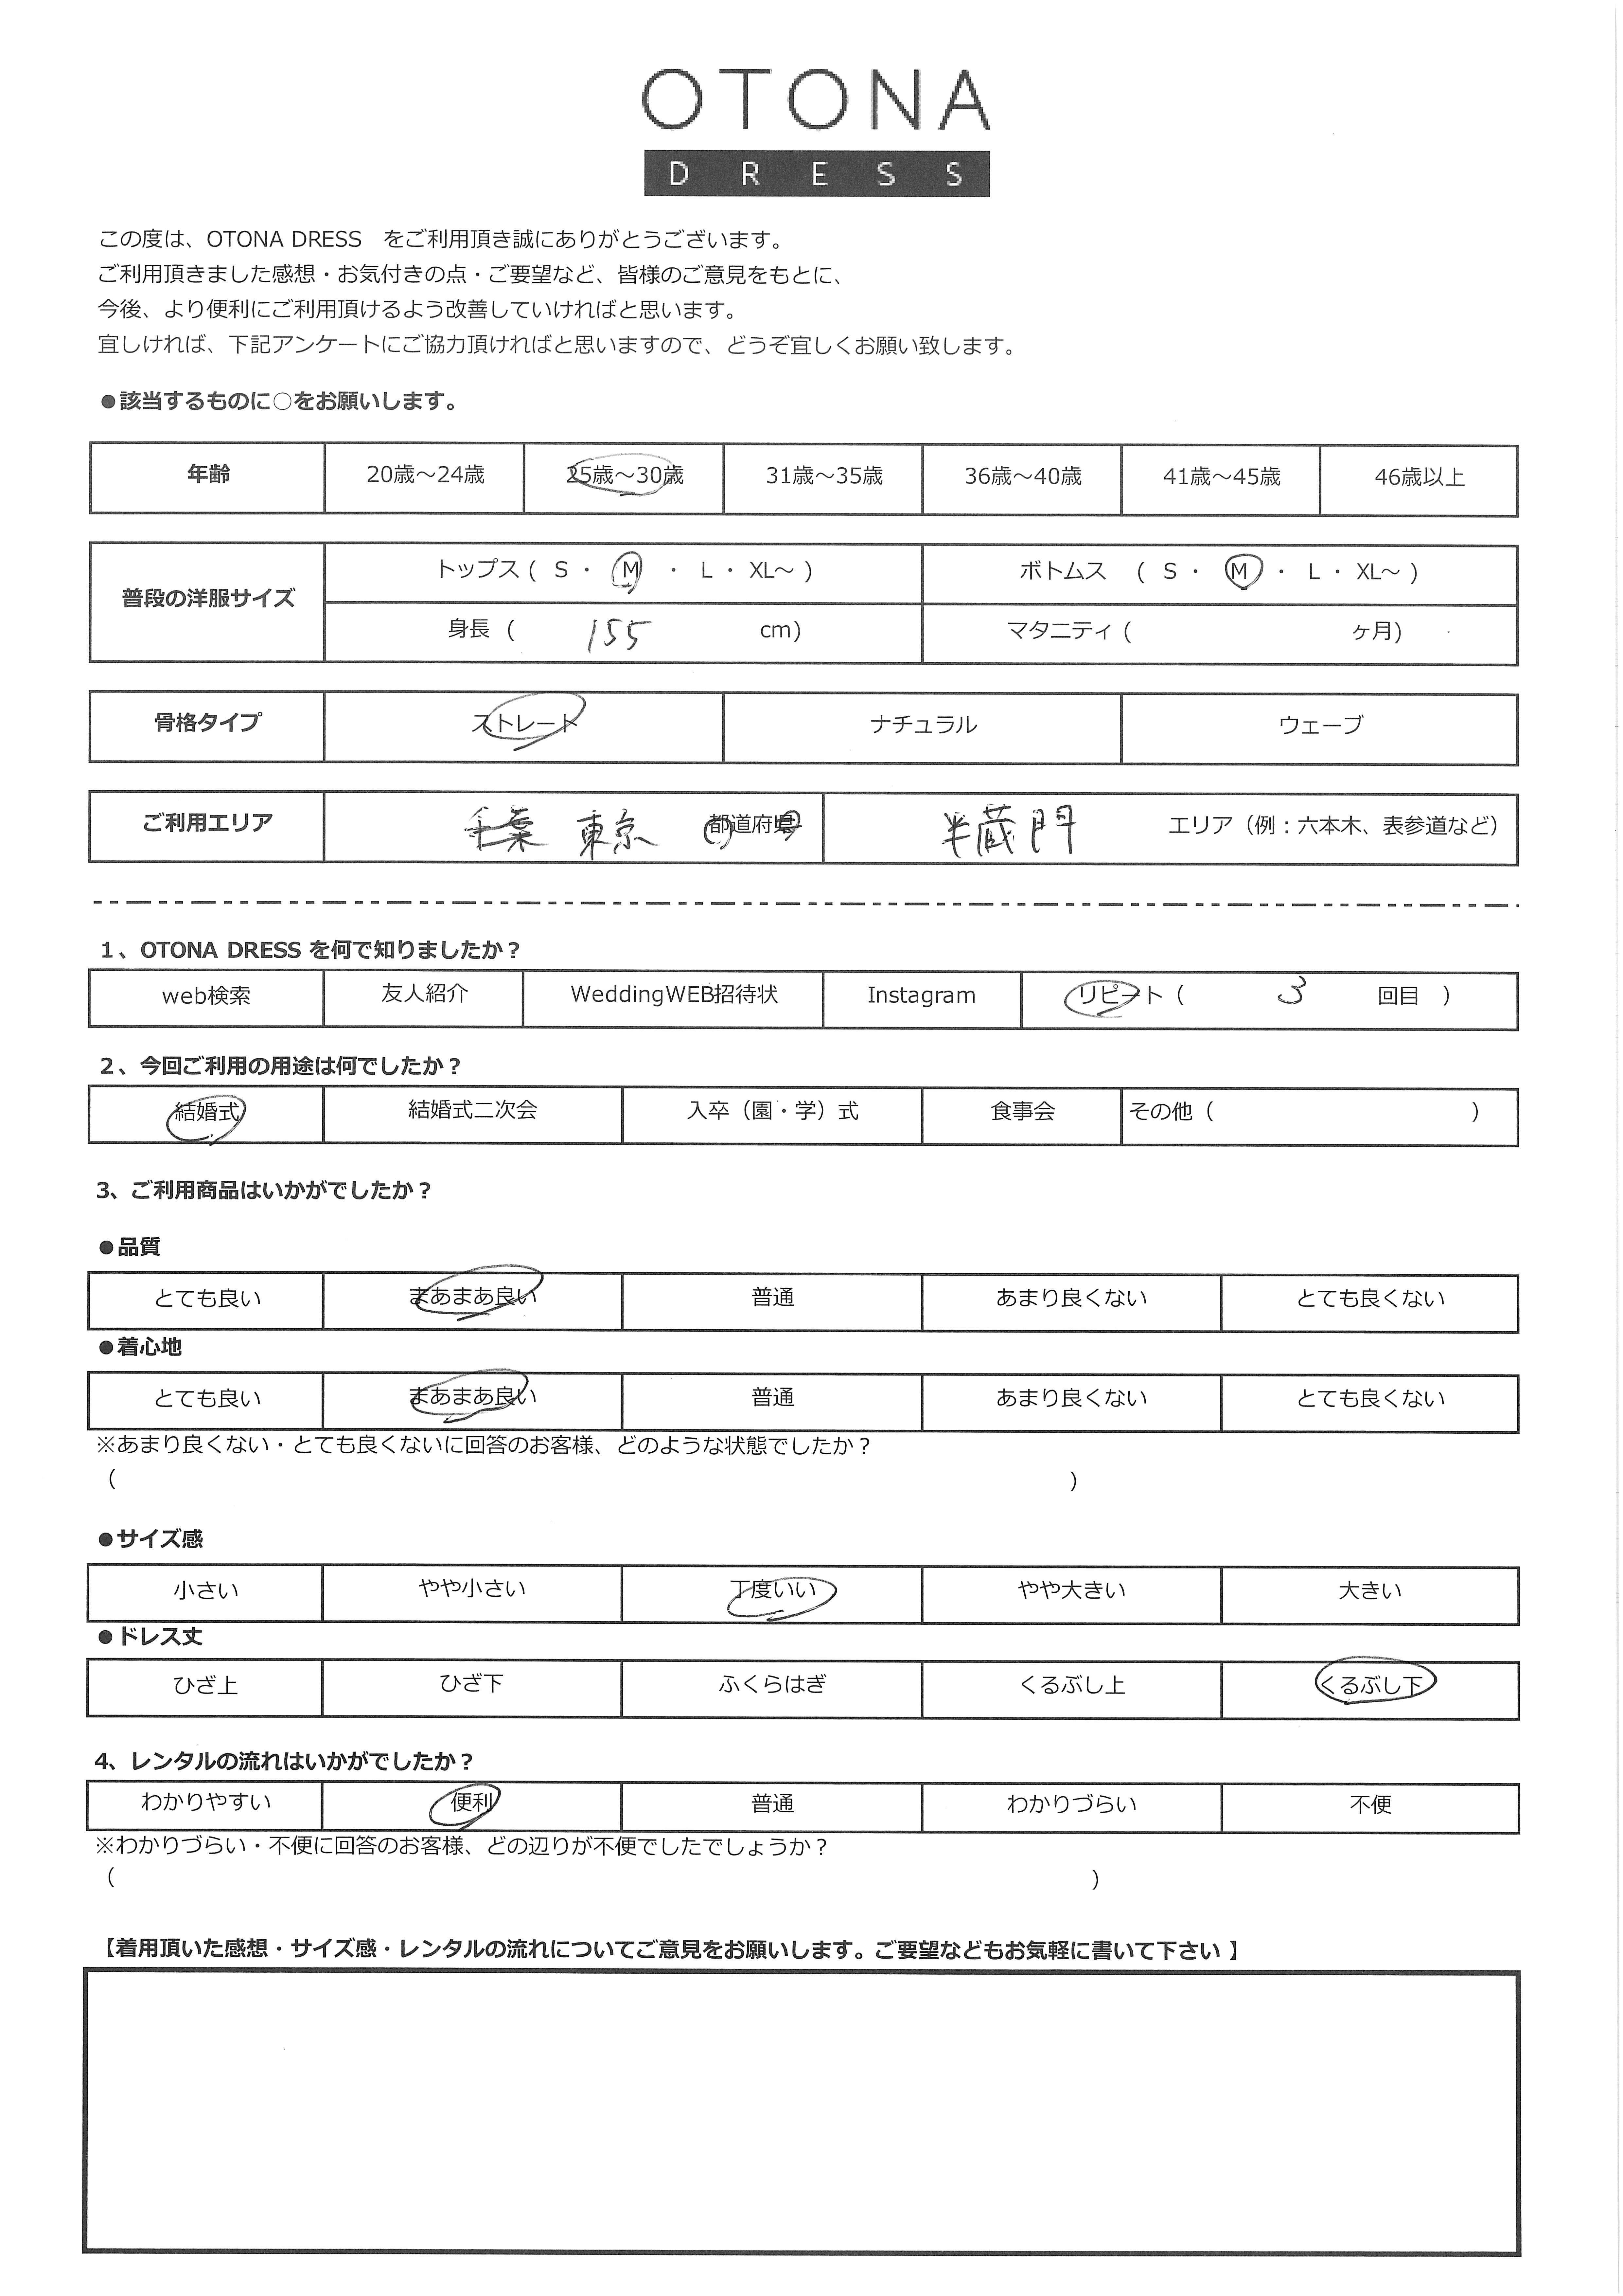 OTONA
DRESS
この度は、OTONA DRESS　をご利用頂き誠にありがとうございます。
ご利用頂きました感想・お気付きの点・ご要望など、皆様のご意見をもとに、
今後、より便利にご利用頂けるよう改善していければと思います。
宜しければ、下記アンケートにご協力頂ければと思いますので、どうぞ宜しくお願い致します。
●該当するものに○をお願いします。
年齢 20歳～24歳 25歳～30歳 31歳～35歳 36歳～40歳 41歳～45歳 46歳以上
普段の洋服サイズ トップス ( S ・ M ・ L ・ XL～ ) ボトムス ( S ・ M ・ L ・ XL～ )
身長 ( 155 cm) マタニティ ( ヶ月)
骨格タイプ ストレート ナチュラル ウェーブ
ご利用エリア 千葉 東京 都道府県 半蔵門 エリア（例：六本木、表参道など）
1、OTONA DRESS を何で知りましたか？
web検索 友人紹介 WeddingWEB招待状 Instagram リピート（ 3 回目 ）
2、今回ご利用の用途は何でしたか？
結婚式 結婚式二次会 入卒（園・学）式 食事会 その他（ ）
3、ご利用商品はいかがでしたか？
●品質
とても良い まあまあ良い 普通 あまり良くない とても良くない
●着心地
とても良い まあまあ良い 普通 あまり良くない とても良くない
※あまり良くない・とても良くないに回答のお客様、どのような状態でしたか？
（ ）
●サイズ感
小さい やや小さい 丁度いい やや大きい 大きい
●ドレス丈
ひざ上 ひざ下 ふくらはぎ くるぶし上 くるぶし下
4、レンタルの流れはいかがでしたか？
わかりやすい 便利 普通 わかりづらい 不便
※わかりづらい・不便に回答のお客様、どの辺りが不便でしたでしょうか？
（ ）
【着用頂いた感想・サイズ感・レンタルの流れについてご意見をお願いします。ご要望などもお気軽に書いて下さい 】